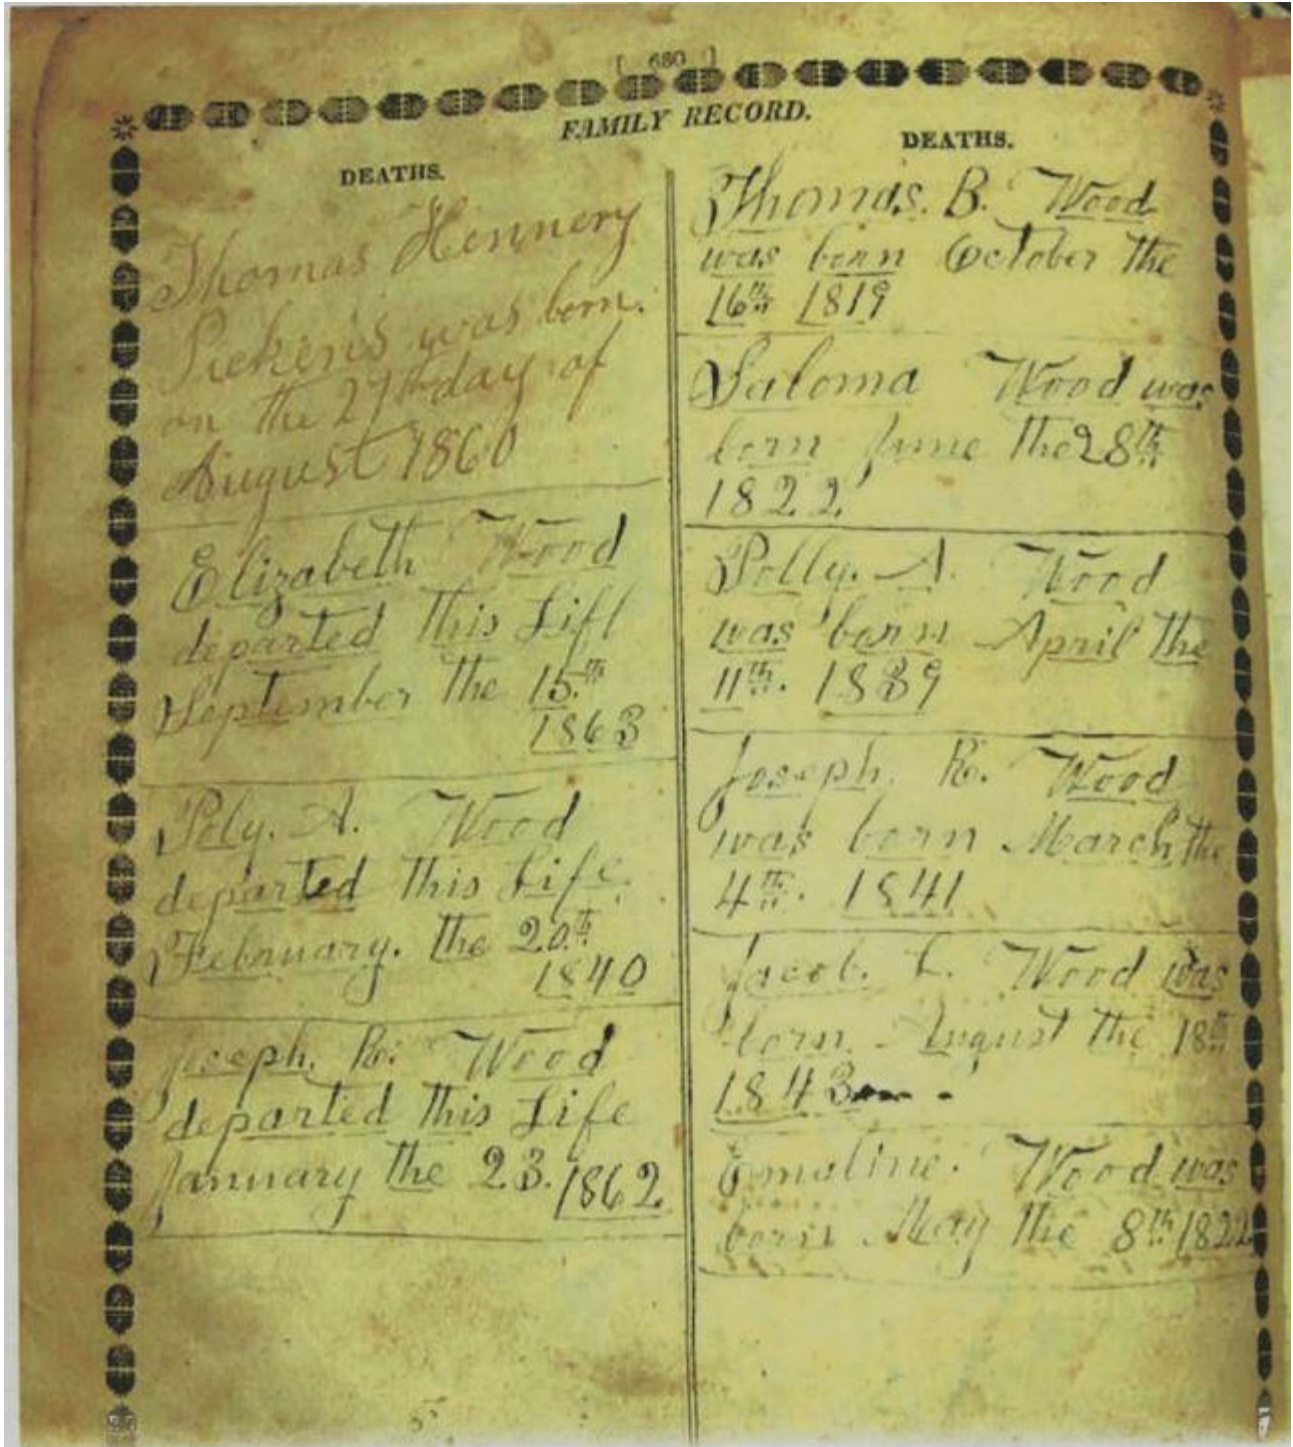 [ 680 ]
FAMILY RECORD.
DEATHS.
Thomas Hennery
Pickens was born
on the 27th day of
August 1860
Elizabeth Wood
departed this Life
September the 15.th
1863
Poly. A. Wood
departed this Life.
February. the 20.th
1840
Joseph. R. Wood
departed this Life
January the 23. 1862
DEATHS.
Thomas. B. Wood
was born October the
16th 1819
Saloma Wood was
born June the 28th
1822
Polly. A. Wood
was born April the
11th. 1839
Joseph. R. Wood
was born March the
4th. 1841
Jacob. L. Wood was
born. August the 18th
1843
Emaline. Wood was
born May the 8th 1822